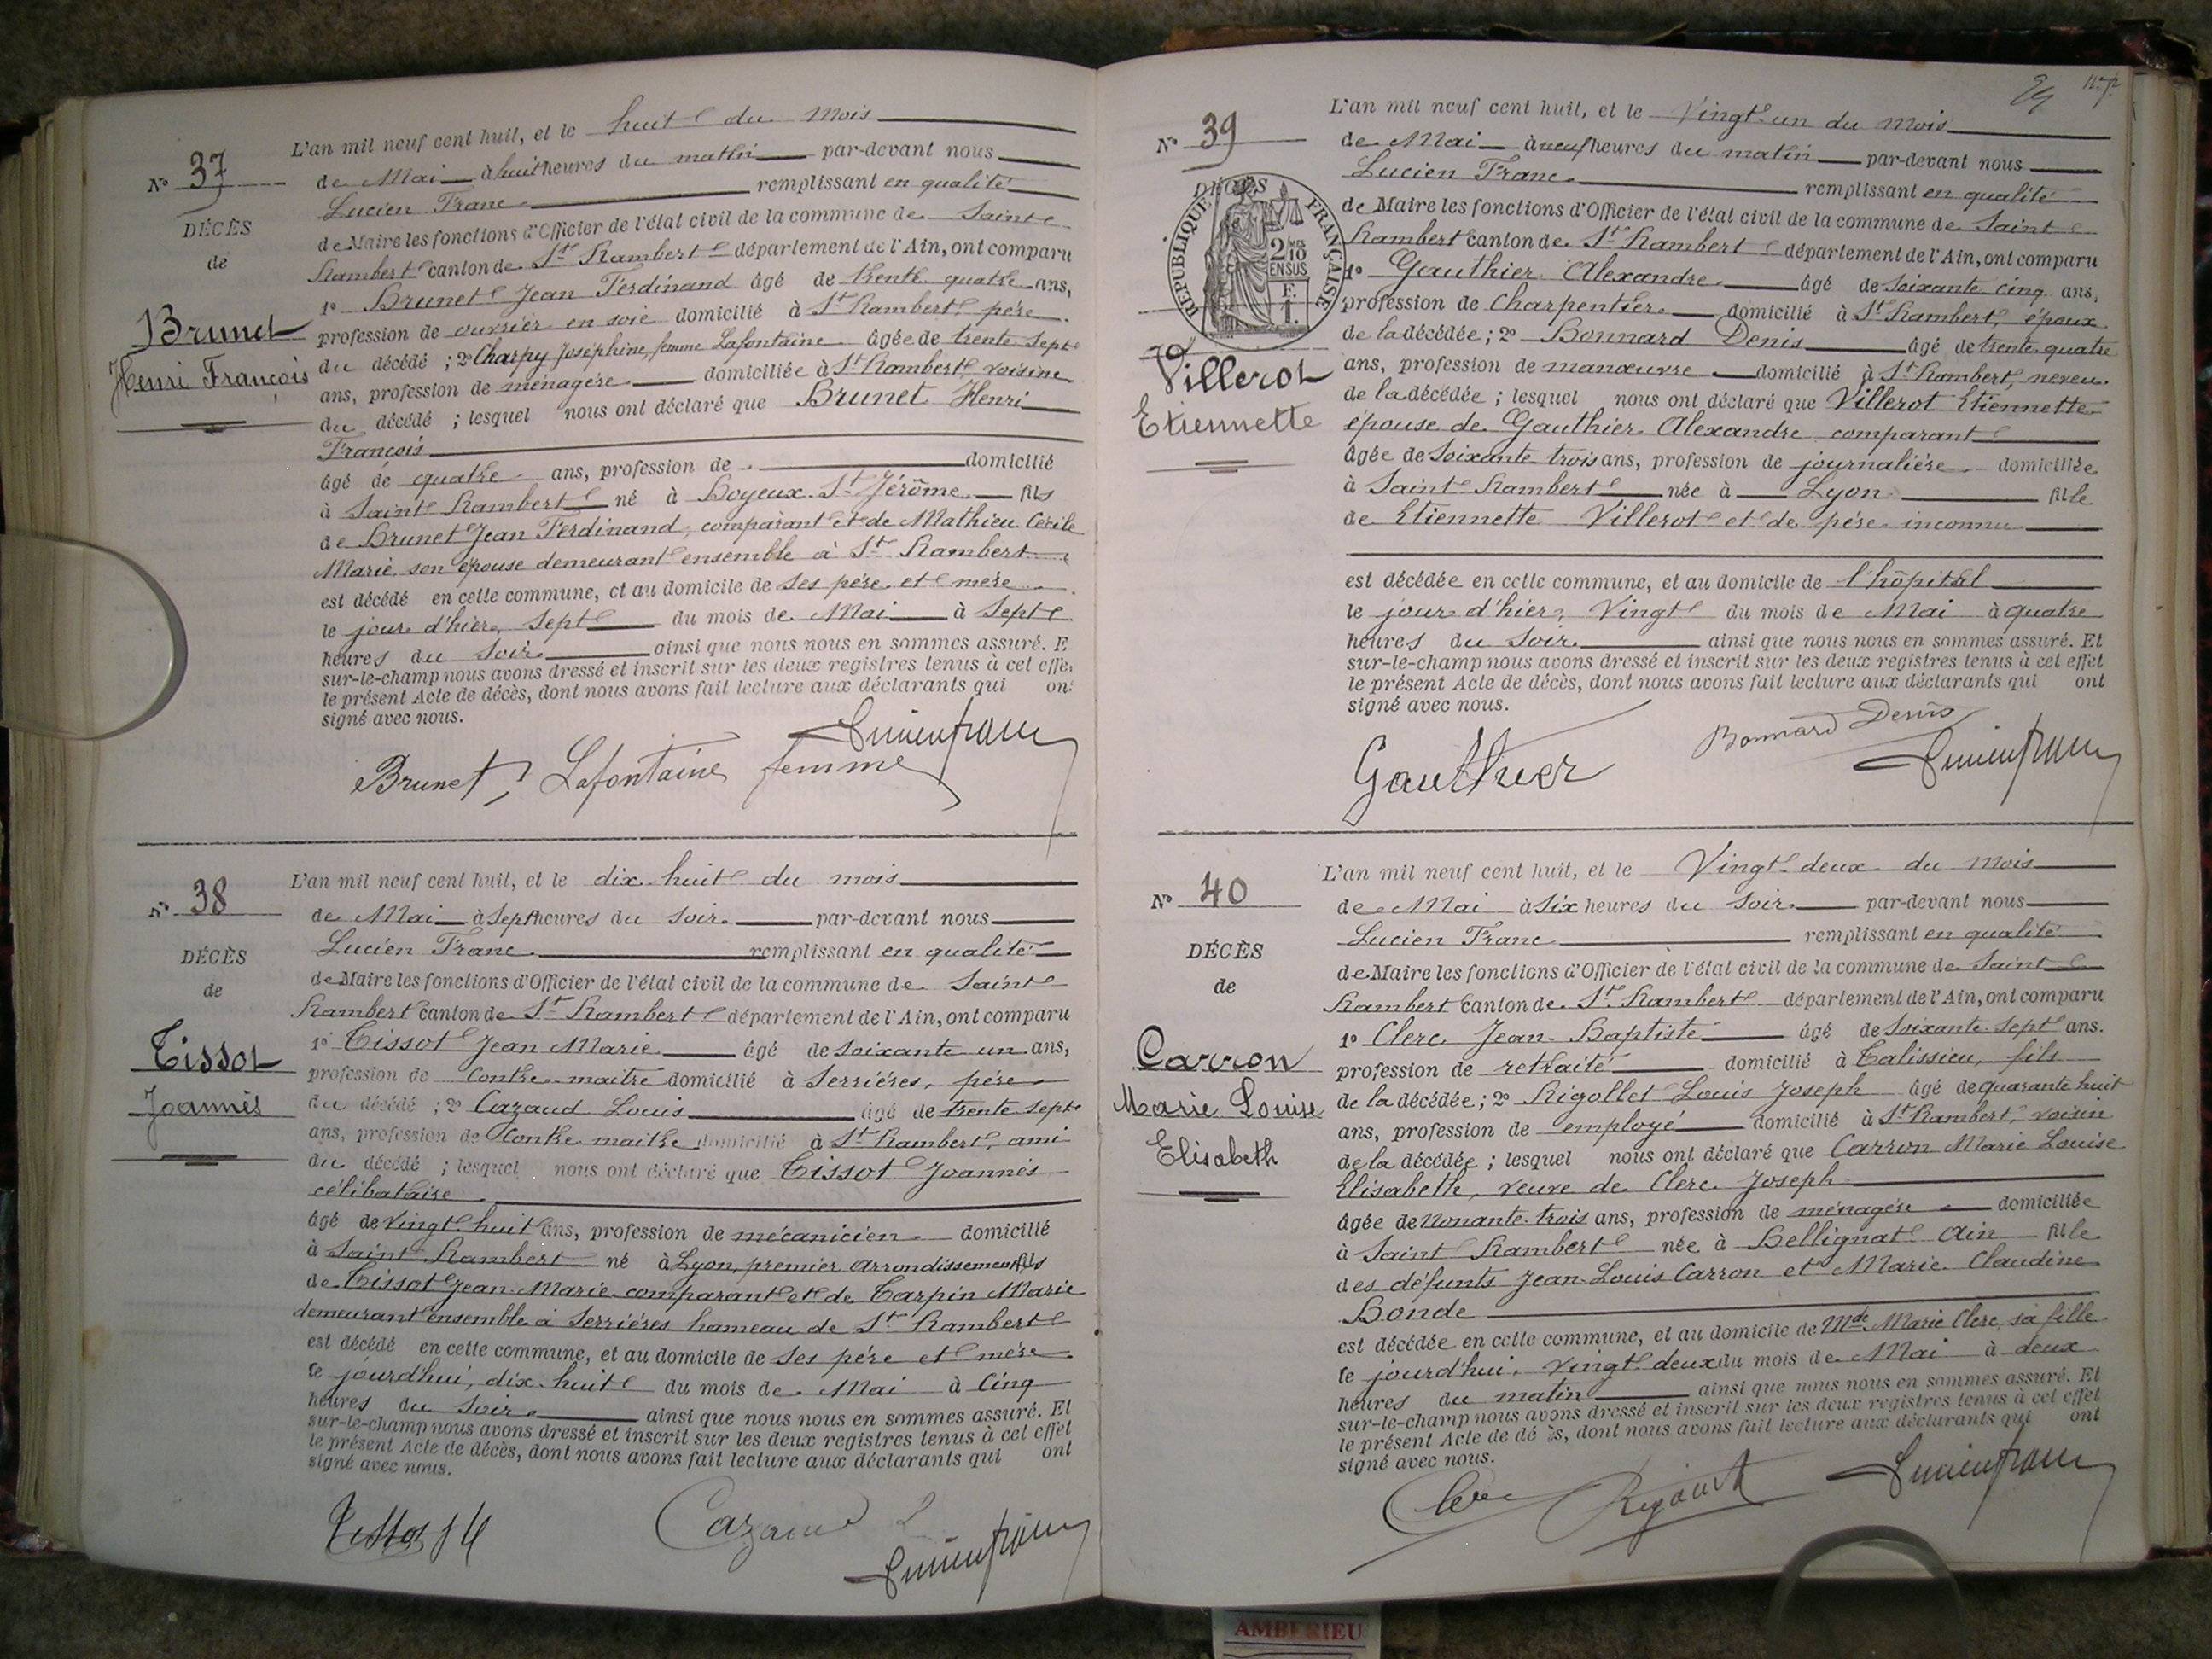 N° 37
DÉCÈS
de
Brunet
Henri François
L'an mil neuf cent huit, et le huit du mois
de Mai à huit heures du matin par-devant nous
Lucien Franc remplissant en qualité
de Maire les fonctions d'Officier de l'état civil de la commune de Saint
Rambert canton de St Rambert département de l'Ain, ont comparu
1° Brunet Jean Ferdinand âgé de trente quatre ans,
profession de ouvrier en soie domicilié à St Rambert, père
du décédé ; 2° Charpy Joséphine, femme Lafontaine âgée de trente-sept
ans, profession de ménagère domiciliée à St Rambert voisine
du décédé ; lesquel nous ont déclaré que Brunet Henri
François
âgé de quatre ans, profession de domicilié
à Saint Rambert né à Boyeux-St Jérôme fils
de Brunet Jean Ferdinand, comparant et de Mathieu Cécile
Marie son épouse demeurant ensemble à St Rambert
est décédé en cette commune, et au domicile de ses père et mère
le jour d'hier, sept du mois de Mai à sept
heures du soir ainsi que nous nous en sommes assuré. E
sur-le-champ nous avons dressé et inscrit sur les deux registres tenus à cet effe
le présent Acte de décès, dont nous avons fait lecture aux déclarants qui ont
signé avec nous.
Brunet Lafontaine femme Lucien Franc
N° 38
DÉCÈS
de
Tissot
Joannès
L'an mil neuf cent huit, et le dix huit du mois
de Mai à sept heures du soir par-devant nous
Lucien Franc remplissant en qualité
de Maire les fonctions d'Officier de l'état civil de la commune de Saint
Rambert canton de St Rambert département de l'Ain, ont comparu
1° Tissot Jean Marie âgé de soixante un ans,
profession de Contre-maître domicilié à Serrières, père
du décédé ; 2° Cazaud Louis âgé de trente sept
ans, profession de Contre maître domicilié à St Rambert, ami
du décédé ; lesquel nous ont déclaré que Tissot Joannès
célibataire
âgé de vingt huit ans, profession de mécanicien domicilié
à Saint Rambert né à Lyon, premier arrondissement fils
de Tissot Jean-Marie comparant et de Tarpin Marie
demeurant ensemble à Serrières hameau de St Rambert
est décédé en cette commune, et au domicile de ses père et mère
le jourd'hui, dix-huit du mois de Mai à cinq
heures du soir ainsi que nous nous en sommes assuré. Et
sur-le-champ nous avons dressé et inscrit sur les deux registres tenus à cet effet
le présent Acte de décès, dont nous avons fait lecture aux déclarants qui ont
signé avec nous.
Tissot JM Cazaud L Lucien Franc
N° 39
DÉCÈS
RÉPUBLIQUE FRANÇAISE
2 MES 10
EN SUS
F.
1.
Villerot
Etiennette
L'an mil neuf cent huit, et le Vingt-un du mois
de Mai à neuf heures du matin par-devant nous
Lucien Franc remplissant en qualité
de Maire les fonctions d'Officier de l'état civil de la commune de Saint
Rambert canton de St Rambert département de l'Ain, ont comparu
1° Gauthier Alexandre âgé de soixante cinq ans,
profession de charpentier domicilié à St Rambert, époux
de la décédée ; 2° Bonnard Denis âgé de trente-quatre
ans, profession de manœuvre domicilié à St Rambert, neveu
de la décédée ; lesquel nous ont déclaré que Villerot Etiennette
épouse de Gauthier Alexandre comparant
âgée de soixante-trois ans, profession de journalière domiciliée
à Saint Rambert née à Lyon fille
de Etiennette Villerot et de père inconnu
est décédée en cette commune, et au domicile de l'hôpital
le jour d'hier, Vingt du mois de Mai à quatre
heures du soir ainsi que nous nous en sommes assuré. Et
sur-le-champ nous avons dressé et inscrit sur les deux registres tenus à cet effet
le présent Acte de décès, dont nous avons fait lecture aux déclarants qui ont
signé avec nous.
Gauthier Bonnard Denis Lucien Franc
N° 40
DÉCÈS
de
Carron
Marie Louise
Elisabeth
L'an mil neuf cent huit, et le Vingt-deux du mois
de Mai à six heures du soir par-devant nous
Lucien Franc remplissant en qualité
de Maire les fonctions d'Officier de l'état civil de la commune de Saint
Rambert canton de St Rambert département de l'Ain, ont comparu
1° Clerc Jean-Baptiste âgé de soixante-sept ans.
profession de retraité domicilié à Talissieu, fils
de la décédée ; 2° Rigollet Louis Joseph âgé de quarante huit
ans, profession de employé domicilié à St Rambert, voisin
de la décédée ; lesquel nous ont déclaré que Carron Marie Louise
Elisabeth, veuve de Clerc Joseph
âgée de nonante-trois ans, profession de ménagère domiciliée
à Saint Rambert née à Bellignat Ain fille
des défunts Jean-Louis Carron et Marie Claudine
Bonde
est décédée en cette commune, et au domicile de Mde Marie Clerc, sa fille
le jourd'hui, vingt deux du mois de Mai à deux
heures du matin ainsi que nous nous en sommes assuré. Et
sur-le-champ nous avons dressé et inscrit sur les deux registres tenus à cet effet
le présent Acte de dé ès, dont nous avons fait lecture aux déclarants qui ont
signé avec nous.
Clerc Lucien Franc
AMBERIEU